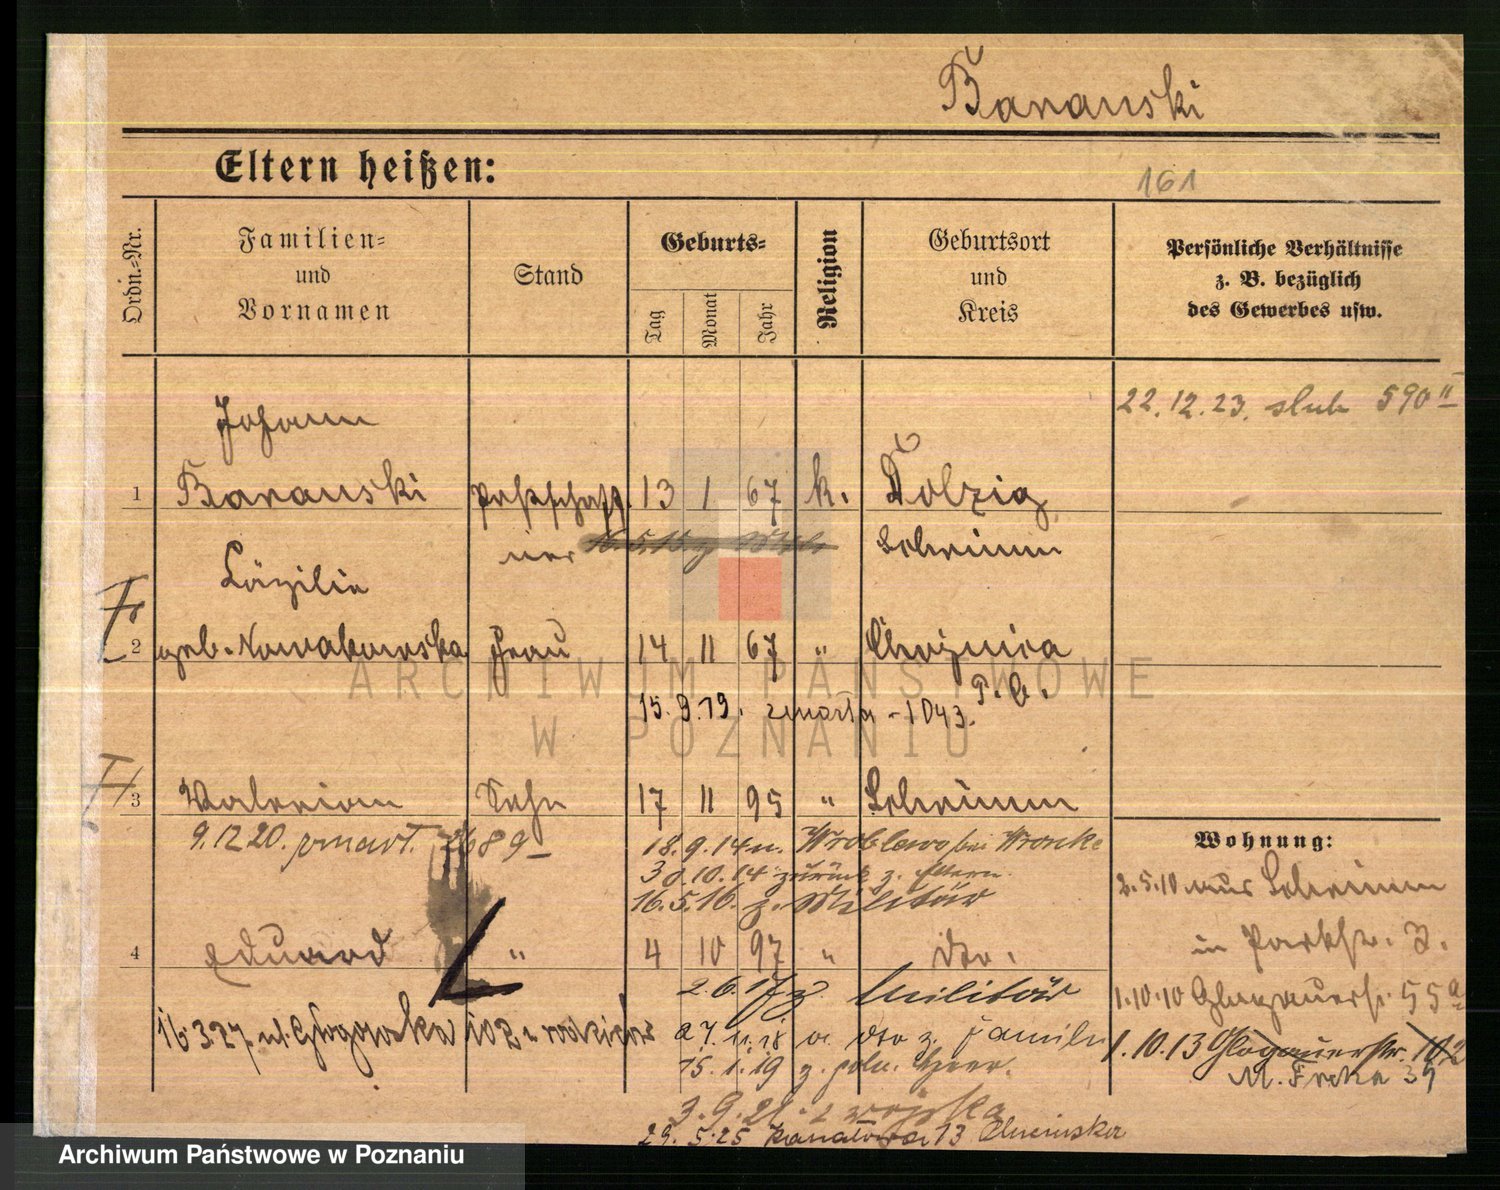 Baranski
Eltern heißen:
161
Ordn.-Nr.
Familien-
und
Vornamen
Stand
Geburts-
Tag
Monat
Jahr
Religion
Geburtsort
und
Kreis
Persönliche Verhältnisse
z. B. bezüglich
des Gewerbes usw.
22.12.23. slub 590 II
Johann
1 Baranski Postschaff. 13 1 67 k. Dolzig
ner Schrimm
Cäzilie
2 geb. Nowakowska Frau 14 11 67 "
15.9.19. zmarła - 1043.
3 Valerian Sohn 17 11 95 " Schrimm
9.12.20. zmart. 2689
18.9.14 n. Wroblewo bei Wronke
30.10.14 zurück z. Eltern.
16.5.16. z. Militär
4 Eduard " 4 10 97 " dto.
2.6.17 z. Militär
16.3.27 ul. Głogowska 102 u rodziców
a. dto z. Familie
15.1.19 z. poln. Heer.
3.9.21. z wojska
29.5.25 Kanałowa 13
Wohnung:
2.5.10 aus Schrimm
in Parkstr. 3.
1.10.10 Glogauerstr. 55a
1.10.13 Glogauerstr. 102
M. Focha 39
ARCHIWUM PAŃSTWOWE
W POZNANIU
Archiwum Państwowe w Poznaniu